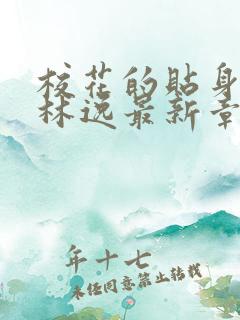 校花的贴身
林逸最新章
年十七
未经同意禁止转载